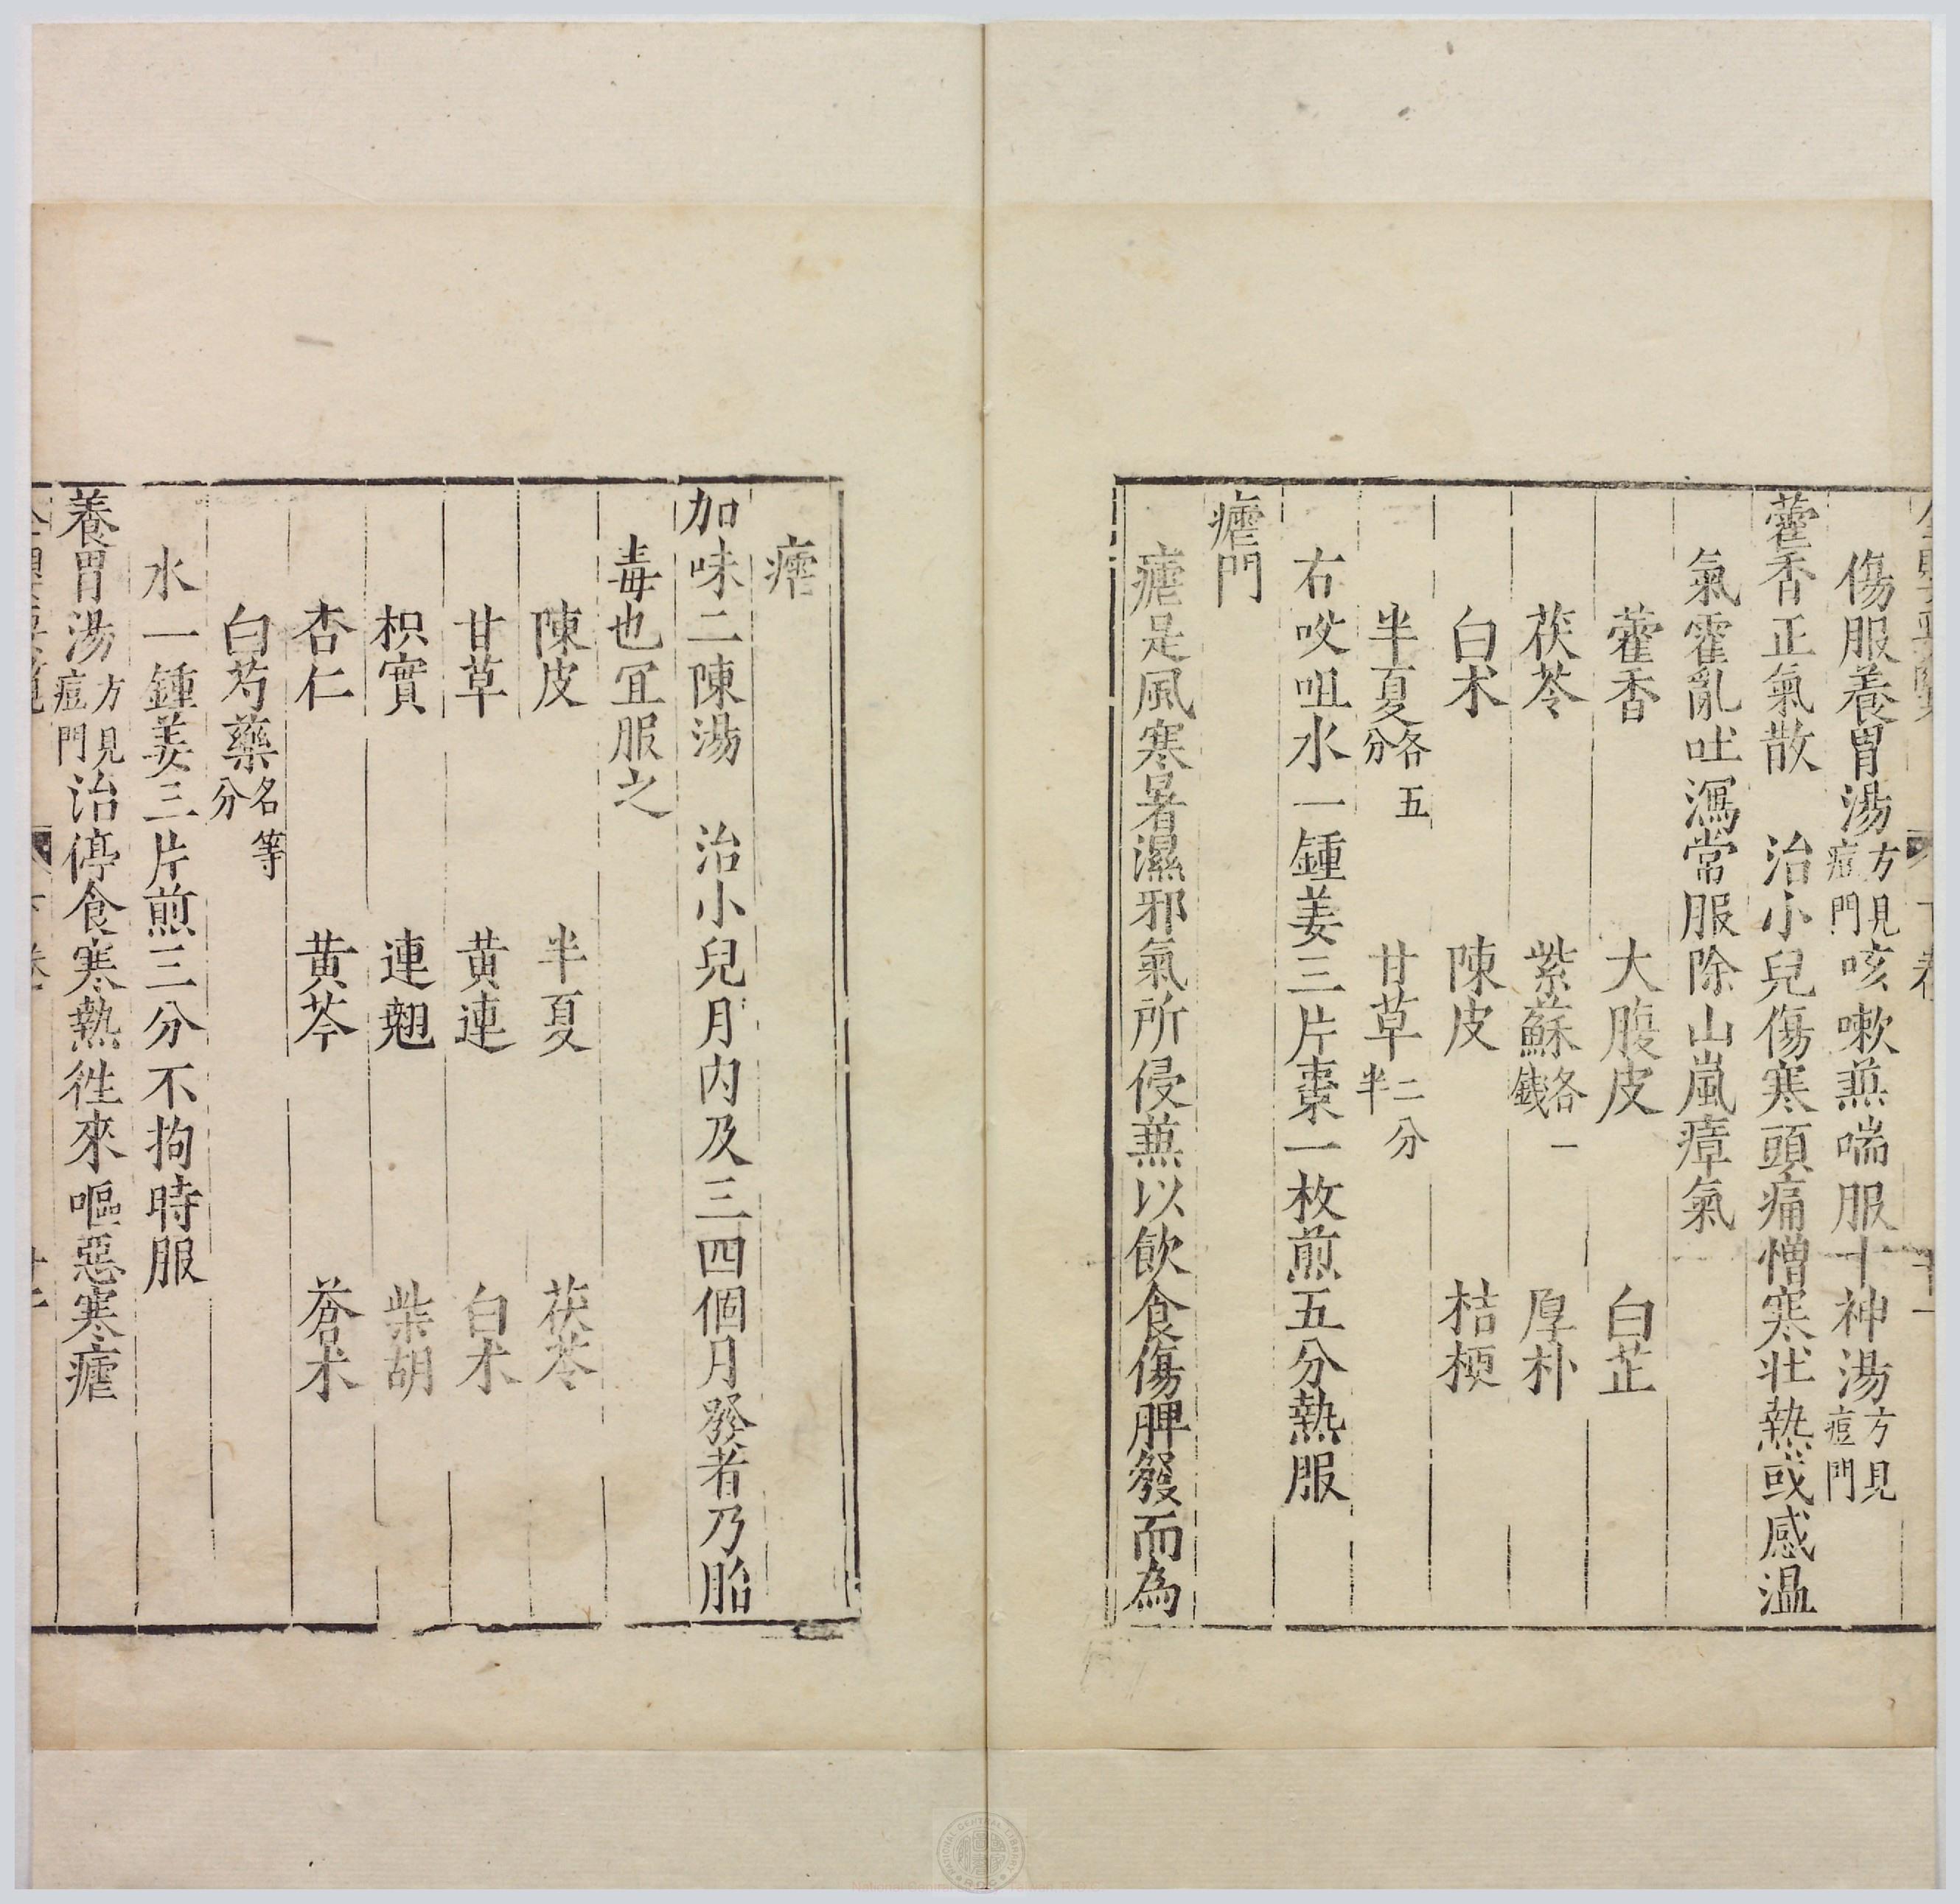 傷服養胃湯方見痘門咳嗽蒸喘服十神湯方見痘門
藿香正氣散　治小兒傷寒頭痛憎寒壯熱或感温
氣霍亂吐瀉常服除山嵐瘴氣
藿香　大腹皮　白芷
茯苓　紫蘇各一錢　厚朴
白术　陳皮　桔梗
半夏各五分　甘草二分半
右㕮咀水一鍾姜三片棗一枚煎五分熱服
瘧門
瘧是風寒暑濕邪氣所侵蒸以飲食傷脾發而為
瘧
加味二陳湯　治小兒月内及三四個月發者乃胎
毒也冝服之
陳皮　半夏　茯苓
甘草　黄連　白术
枳實　連翹　柴胡
杏仁　黄芩　蒼术
白芍藥各等分
水一鍾姜三片煎三分不拘時服
養胃湯方見痘門治停食寒熱徃來嘔惡寒瘧